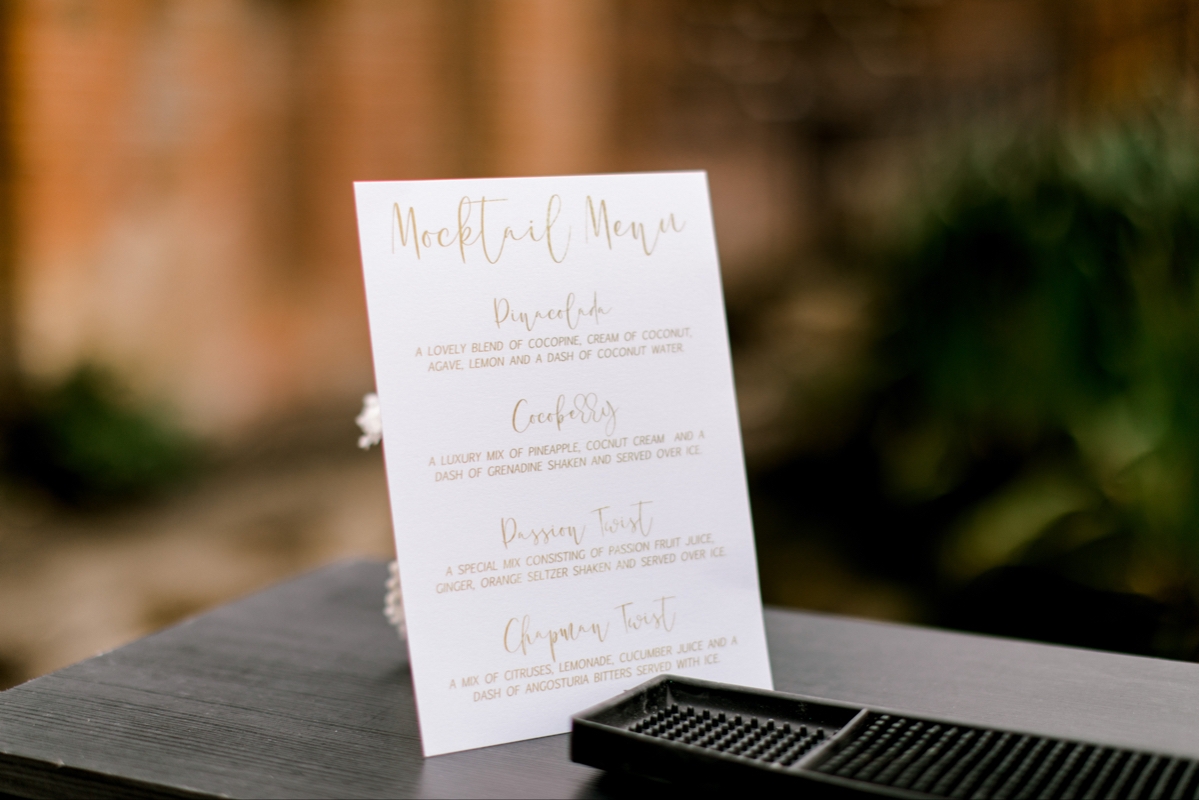 Mocktail Menu
Pinacolada
A LOVELY BLEND OF COCOPINE, CREAM OF COCONUT,
AGAVE, LEMON AND A DASH OF COCONUT WATER.
Cocoberry
A LUXURY MIX OF PINEAPPLE, COCNUT CREAM AND A
DASH OF GRENADINE SHAKEN AND SERVED OVER ICE.
Passion Twist
A SPECIAL MIX CONSISTING OF PASSION FRUIT JUICE,
GINGER, ORANGE SELTZER SHAKEN AND SERVED OVER ICE.
Chapman Twist
A MIX OF CITRUSES, LEMONADE, CUCUMBER JUICE AND A
DASH OF ANGOSTURIA BITTERS SERVED WITH ICE